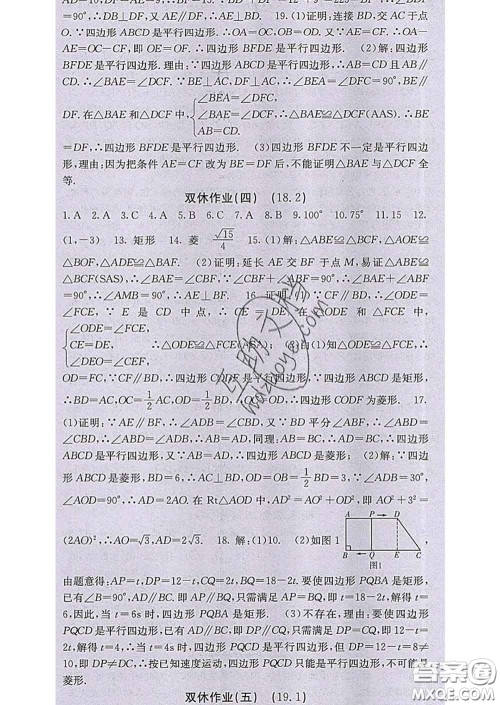 ∴DB⊥DF.又AE∥DF,∴AE⊥BD. 19.(1)证明:连接BD,交AC于点
O.∵四边形ABCD是平行四边形.∴OA=OC,OB=OD.又AE=CF,∴OA-
AE=OC-CF,即OE=OF.∴四边形BFDE是平行四边形. (2)解:四边形
BFDE是平行四边形.理由:∵四边形ABCD是平行四边形,∴AB=CD且AB∥
CD.∴∠BAE=∠DCF.∵BE⊥AC,DF⊥AC,∴∠BEA=∠DFC=90°,BE∥
∠BEA=∠DFC,
DF.在△BAE和△DCF中,∠BAE=∠DCF,∴△BAE≌△DCF(AAS).∴BE
AB=CD.
=DF,∴四边形BFDE是平行四边形. (3)四边形BFDE不一定是平行四边
形,理由:因为把条件AE=CF改为BE=DF后,不能证明△BAE与△DCF全
等.
双休作业(四) (18.2)
1.A 2.A 3.C 4.A 5.B 6.C 7.A 8.B 9.100° 10.75° 11.15 12.
(1,-3) 13.矩形 14.菱 √15/4 15.(1)解:△ABE≌△BCF,△AOE≌
△BOF,△AOB≌ (2)证明:延长AE交BF于点M,易证△ABE≌
△BCF(SAS),∴∠BAE=∠CBF,∵∠CBF+∠ABF=90°,∴∠BAE+∠ABF=
90°,∴∠AMB=90°,∴AE⊥BF. 16.证明:(1)∵CF∥BD,∴∠ODE
=∠FCE,∵E是CD中点,∴CE=DE,在△ODE和△FCE中,
∠ODE=∠FCE,
CE=DE, ∴△ODE≌△FCE(ASA); (2)由(1)知△ODE≌△FCE,∴
∠DEO=∠CEF,
OD=FC,∵CF∥BD,∴四边形ODFC是平行四边形,∵四边形ABCD是矩形,
∴BD=AC,OC=1/2AC,OD=1/2BD,∴OC=OD,∴四边形CODF为菱形. 17.
(1)证明:∵AE∥BF,∴∠ADB=∠CBD,又∵BD平分∠ABF,∴∠ABD=
∠CBD,∴∠ABD=∠ADB,∴AB=AD,同理:AB=BC,∴AD=BC,∴四边形
ABCD是平行四边形,又∵AB=AD,∴四边形ABCD是菱形; (2)解:∵四边形
ABCD是菱形,BD=6,∴AC⊥BD,OD=OB=1/2BD=3,∵∠ADB=30°,
∠AOD=90°,∴AD=2AO.在Rt△AOD中,AD²=AO²+OD²,即AO²+3²=
(2AO)²,∴AO=√3,AD=2√3. 18.解:(1)10. (2)如图1
A P D
B Q E C
图1
由题意得:AP=t,DP=12-t,CQ=2t,BQ=18-2t.要使四边形PQBA是矩形,
已有∠B=90°,AP∥BQ,即AP∥BQ,只需满足AP=BQ,即t=18-2t,解得t=
6,因此,当t=6s时,四边形PQBA是矩形. (3)不存在,理由:要使四边形
PQCD是平行四边形,已有AD∥BC,即DP∥CQ,只需满足DP=CQ,即12-t=
2t,解得t=4,∴当t=4s时,四边形PQCD是平行四边形,但DP=12-t=8≠
10,即DP≠DC,∴按已知速度运动,四边形PQCD只能是平行四边形,不可能是
菱形.
双休作业(五) (19.1)
答案圈
MXQE.COM